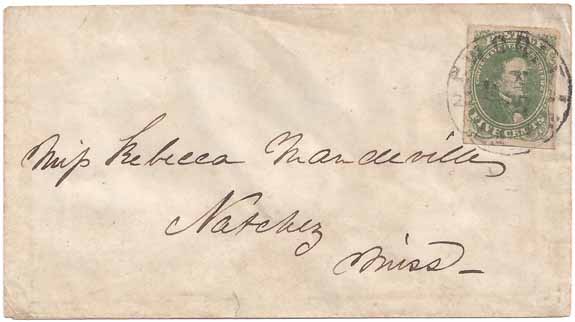 FIVE CENTS
Miss Rebecca Mandeville
Natchez
Miss